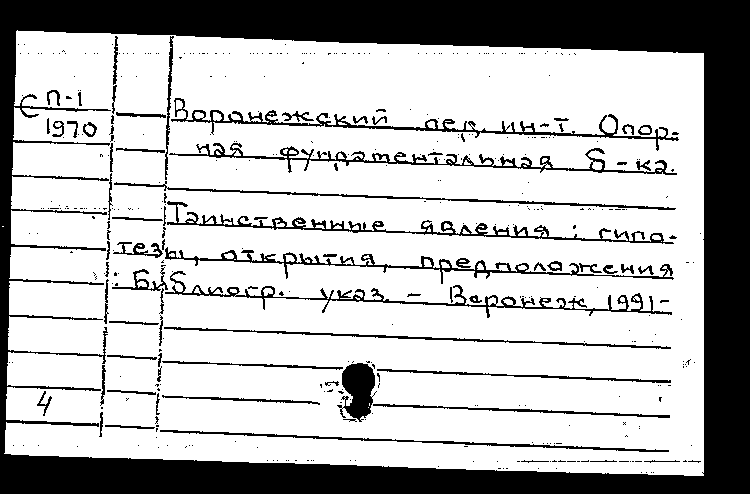 С П-1
1970
Воронежский пед. ин-т. Опор-
ная фундаментальная б-ка.
Таинственные явления : гипо-
тезы, открытия, предположения
: Библиогр. указ. - Воронеж, 1991-
4